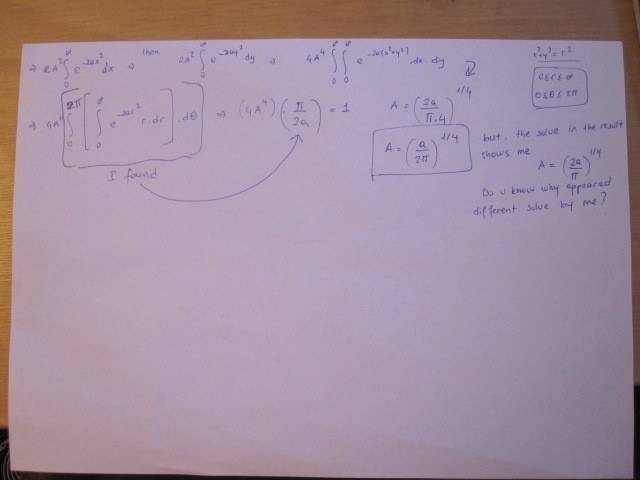 ⇒ 2A² ∫₀^∞ e^(-2ax²) dx ⇒ then 2A² ∫₀^∞ e^(-2ay²) dy ⇒ 4A⁴ ∫₀^∞ ∫₀^∞ e^(-2a(x²+y²)) dx dy
x²+y² = r²
0≤r≤∞
0≤θ≤2π
⇒ 4A⁴ [ ∫₀^2π [ ∫₀^∞ e^(-2ar²) r.dr ] . dθ ] ⇒ (4A⁴) . (π/2a) = 1
I found
A = (2a/π.4)^1/4
A = (a/2π)^1/4
but, the solve in the result
shows me
A = (2a/π)^1/4
Do u know why appeared
different solve by me?